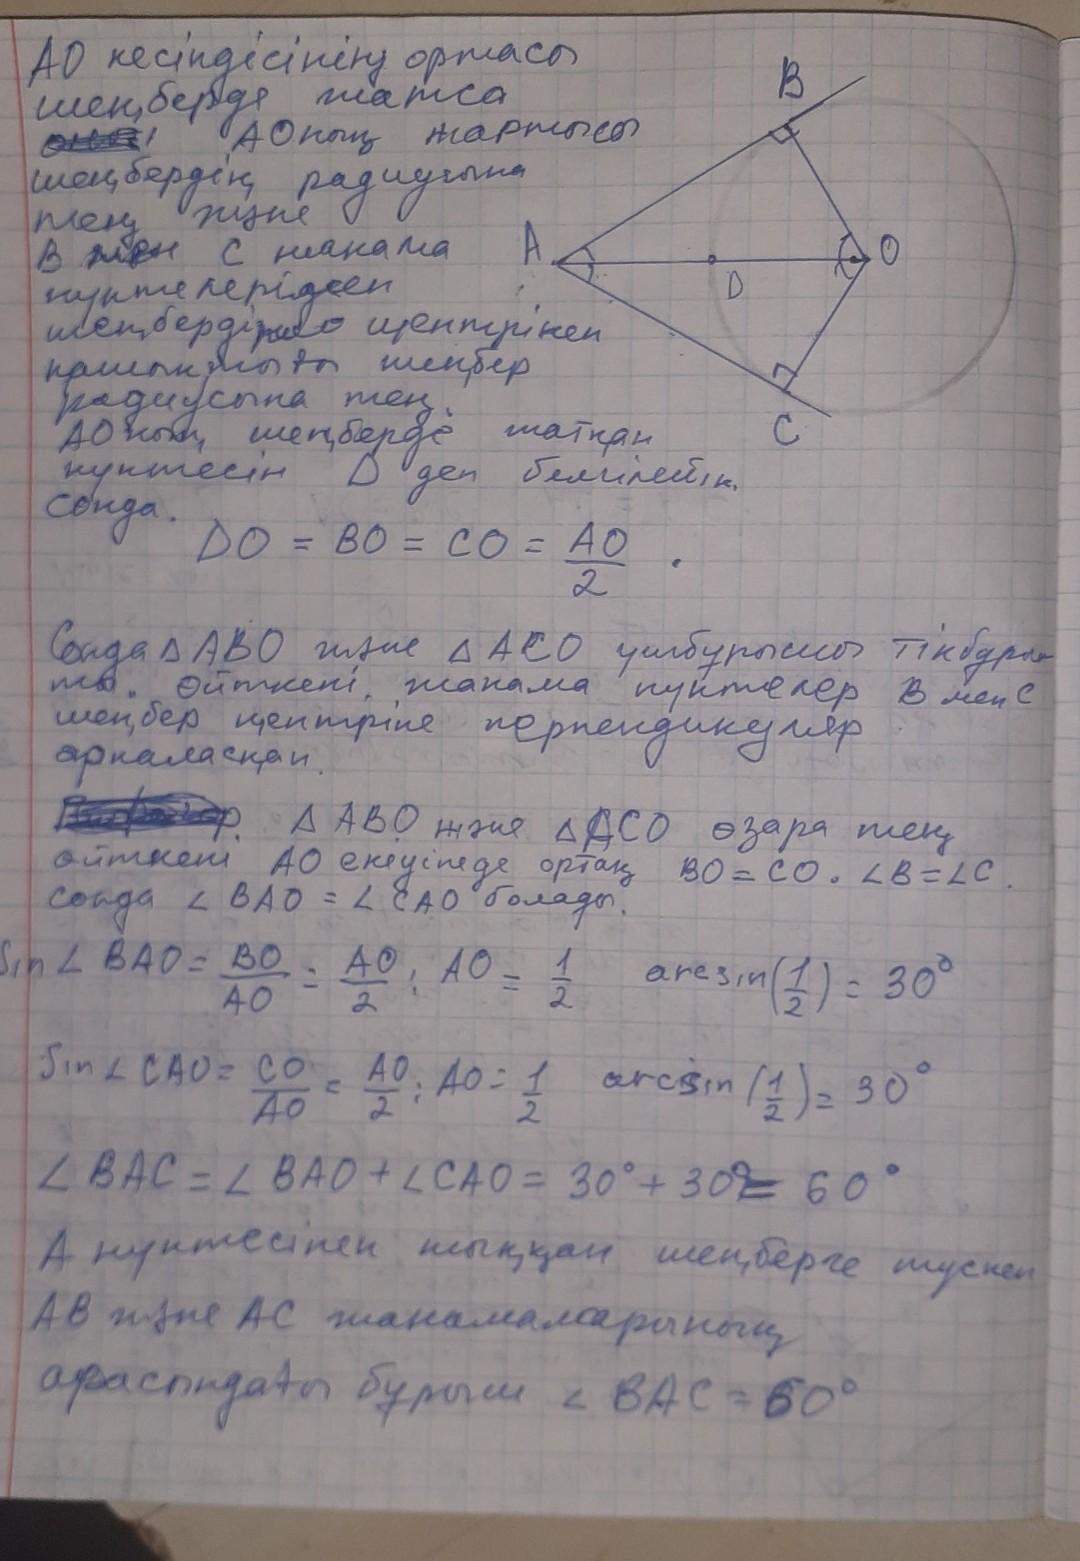 АО кесіндісінің ортасы
шеңберде жатса
АОның жартысы
шеңбердің радиусына
тең және
В мен С жанама
нүктелерінен
шеңбердің центрінен
қашықтығы шеңбер
радиусына тең.
АОның шеңберде жатқан
нүктесін D деп белгілейік.
Сонда.
DO = BO = CO = AO/2 .
Сонда △ABO және △ACO үшбұрышы Тікбұрыш
ты. Өйткені, жанама нүктелер В мен С
шеңбер центріне перпендикуляр
орналасқан.
△ABO және △ACO өзара тең
өйткені АО екеуінеде ортақ BO = CO. ∠B = ∠C.
Сонда ∠BAO = ∠CAO болады.
Sin∠BAO = BO/AO = AO/2 : AO = 1/2 arcsin(1/2) = 30°
Sin∠CAO = CO/AO = AO/2 : AO = 1/2 arcsin(1/2) = 30°
∠BAC = ∠BAO + ∠CAO = 30° + 30° = 60°
А нүктесінен шыққан шеңберге түскен
АВ және АС жанамаларының
арасындағы бұрыш ∠BAC = 60°
B
A
O
D
C